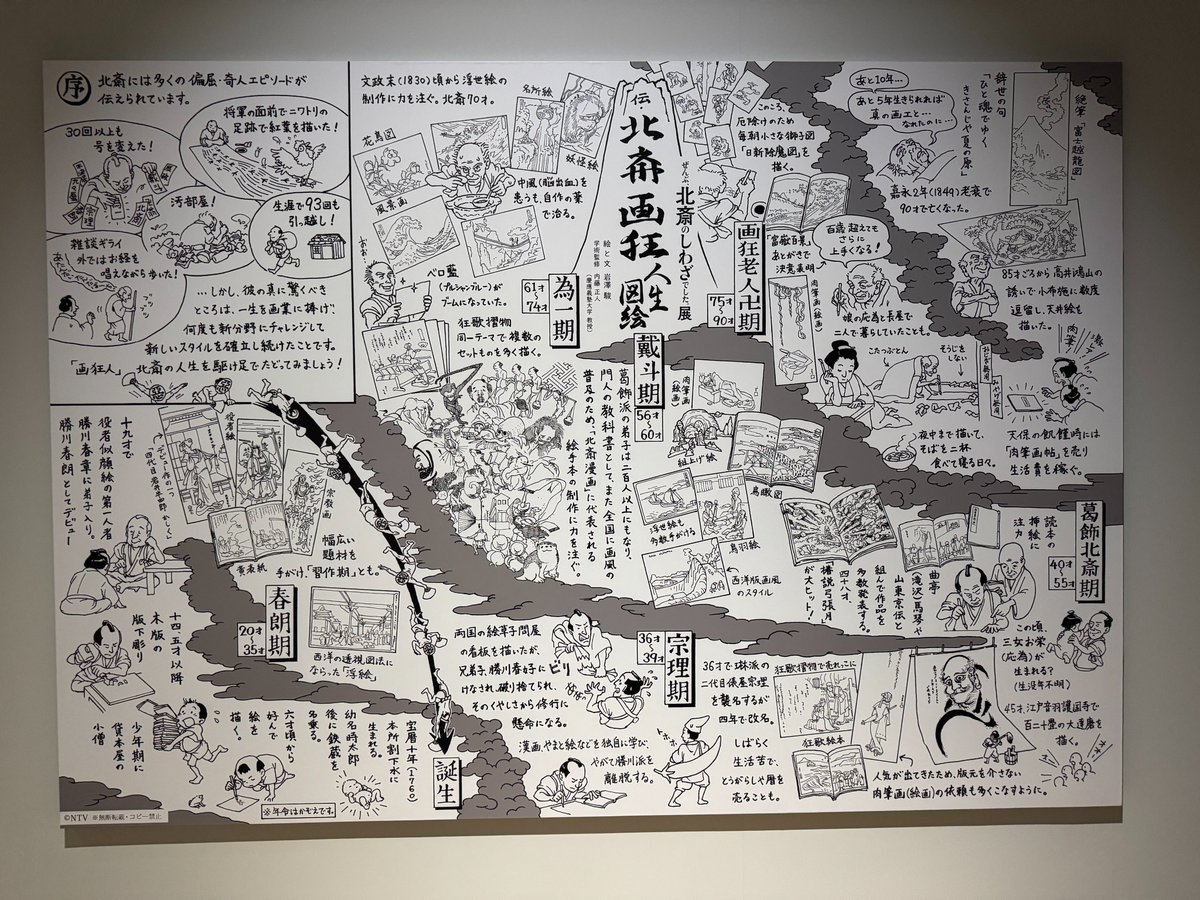 序
北斎には多くの偏屈・奇人エピソードが
伝えられています。
30回以上も
号を変えた!
将軍の面前でニワトリの
足跡で紅葉を描いた!
汚部屋!
生涯で93回も
引っ越し!
雑談ギライ
外ではお経を
唱えながら歩いた!
ブツブツ
…しかし、彼の真に驚くべき
ところは、一生を画業に捧げ、
何度も新分野にチャレンジして
新しいスタイルを確立し続けたことです。
「画狂人」北斎の人生を駆け足でたどってみましょう!
伝
北斎画狂人生図絵
ぜんぶ北斎のしわざでした。展
絵と文 岩澤 駿
学術監修 内藤正人
(慶應義塾大学 教授)
誕生
宝暦十年(1760)
本所割下水に
生まれる。
幼名時太郎
後に鉄蔵を
名乗る。
六才頃から
好んで
絵を
描く。
少年期に
貸本屋の
小僧
十四、五才以降
木版の
版下彫り
十九才で
役者似顔絵の第一人者
勝川春章に弟子入り。
勝川春朗としてデビュー
※年令はかぞえです。
春朗期
20才〜35才
役者絵
デビュー作の一つ
宗教画
黄表紙
幅広い
題材を
手がけ、「習作期」とも。
西洋の透視図法に
ならった「浮絵」
両国の絵草子問屋
の看板を描いたが、
兄弟子、勝川春好にビリ
けなされ、破り捨てられ、
そのくやしさから修行に
懸命になる。
漫画、やまと絵などを独自に学び、
やがて勝川派を
離脱する。
宗理期
36才〜39才
36才で琳派の
二代目俵屋宗理
を襲名するが
四年で改名。
しばらく
生活苦で、
とうがらしや暦を
売ることも。
狂歌摺物で売れっこに
狂歌絵本
人気が出てきたため、版元を介さない
肉筆画(絵画)の依頼も多くこなすように。
葛飾北斎期
40才〜55才
読本の
挿絵に
注力
この頃、
三女お栄
(応為)が
生まれる?
(生没年不明)
45才、江戸音羽護国寺で
百二十畳の大達磨を
描く。
曲亭
(滝沢)馬琴や
山東京伝と
組んで作品を
多数発表する。
四十八才、
「椿説弓張月」
が大ヒット!
戴斗期
56才〜60才
葛飾派の弟子は二百人以上にもなり、
門人の教科書として、また全国に画風の
普及のため、「北斎漫画」に代表される
絵手本の制作に力を注ぐ。
肉筆画
(絵画)
組上げ絵
鳥瞰図
浮世絵も
多数手がける
鳥羽絵
西洋版画風
のスタイル
為一期
61才〜74才
文政末(1830)頃から浮世絵の
制作に力を注ぐ。北斎70才。
花鳥図
名所絵
妖怪絵
風景画
中風(脳出血)を
患うも、自作の薬
で治る。
おお…
ベロ藍
(プルシャンブルー)が
ブームになっていた。
狂歌摺物
同一テーマで複数の
セットものを多く描く。
画狂老人卍期
75才〜90才
このころ、
厄除けのため
毎朝小さな獅子図
「日新除魔図」を
描く。
「富嶽百景」
あとがきで
決意表明
百歳超えても
さらに
上手くなる!
肉筆画(絵画)
娘の応為と長屋で
二人で暮らしていたことも。
こたつぶとん
そうじを
しない
夜中まで描いて、
そばを二杯
食べて寝る日々。
85才ごろから高井鴻山の
誘いで小布施に数度
逗留し、天井絵を
描いた。
肉筆
天保の飢饉時には
「肉筆画帖」を売り
生活費を稼ぐ。
あと10年…
あと5年生きられれば
真の画工と…
なれたのに…
嘉永2年(1849)老衰で
90才で亡くなった。
辞世の句
「ひと魂でゆく
きさんじや夏の原」
絶筆「富士越龍図」
©NTV ※無断転載・コピー禁止